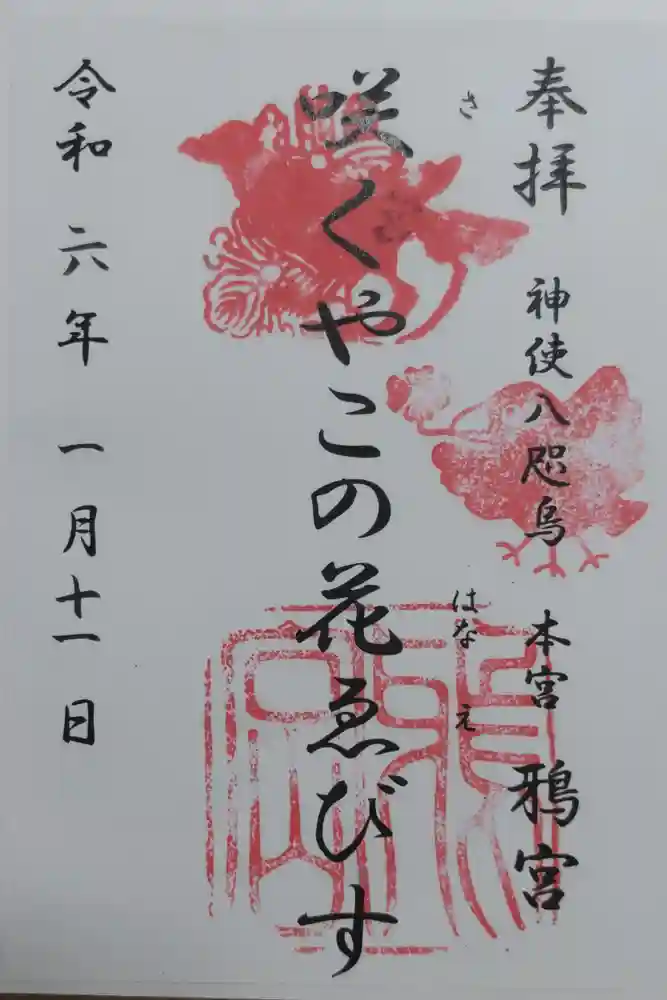 奉拝
神使八咫烏
本宮 鴉宮
咲くやこの花ゑびす
さ
はな
え
令和六年一月十一日